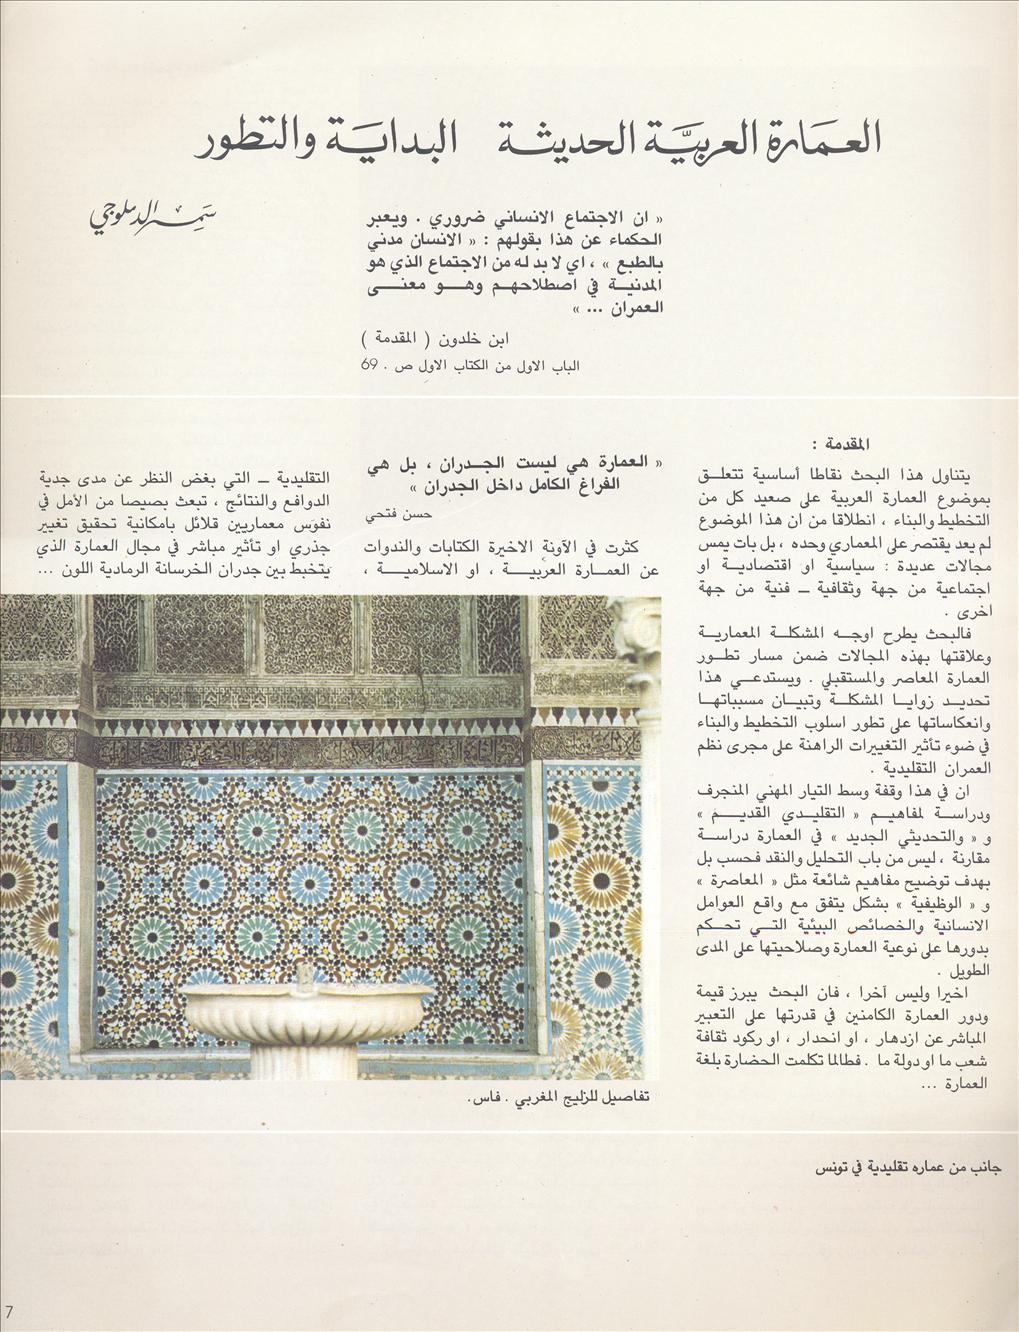 العمارة العربية الحديثة البداية والتطور
سمر الدملوجي
« ان الاجتماع الانساني ضروري . ويعبر
الحكماء عن هذا بقولهم : « الانسان مدني
بالطبع » ، اي لا بد له من الاجتماع الذي هو
المدنيــة في اصطلاحهــم وهــو معنــى
العمران ... »
ابن خلدون ( المقدمة )
الباب الاول من الكتاب الاول ص . 69
المقدمة :
يتناول هذا البحث نقاطا أساسية تتعلــق
بموضوع العمارة العربية على صعيد كل من
التخطيط والبناء ، انطلاقا من ان هذا الموضوع
لم يعد يقتصر على المعماري وحده ، بل بات يمس
مجالات عديدة : سياسية او اقتصاديــة أو
اجتماعية من جهة وثقافية ــ فنية من جهة
اخرى .
فالبحث يطرح اوجــه المشكلــة المعماريــة
وعلاقتها بهذه المجالات ضمن مسار تطــور
العمارة المعاصر والمستقبلي . ويستدعــي هذا
تحديــد زوايــا المشكلــة وتبيــان مسبباتهــا
وانعكاساتها على تطور اسلوب التخطيط والبناء
في ضوء تأثير التغييرات الراهنة على مجرى نظم
العمران التقليدية .
ان في هذا وقفة وسط التيار المهني المنجرف
ودراســة لمفاهيــم « التقليــدي القديــم »
و « والتحديثي الجديد » في العمارة دراســة
مقارنة ، ليس من باب التحليل والنقد فحسب بل
بهدف توضيح مفاهيم شائعة مثل « المعاصرة »
و « الوظيفية » بشكل يتفق مع واقع العوامل
الانسانية والخصائص البيئية التــي تحــكم
بدورها على نوعية العمارة وصلاحيتها على المدى
الطويل .
اخيرا وليس آخرا ، فان البحث يبرز قيمة
ودور العمارة الكامنين في قدرتها على التعبير
المباشر عن ازدهار ، او انحدار ، او ركود ثقافة
شعب ما او دولة ما . فطالما تكلمت الحضارة بلغة
العمارة ...
« العمارة هي ليست الجــدران ، بل هي
الفراغ الكامل داخل الجدران »
حسن فتحي
كثرت في الآونة الاخيرة الكتابات والندوات
عن العمــارة العربيــة ، او الاسلاميــة ،
التقليدية ــ التي بغض النظر عن مدى جدية
الدوافع والنتائج ، تبعث بصيصا من الأمل في
نفوس معماريين قلائل بامكانية تحقيق تغيير
جذري او تأثير مباشر في مجال العمارة الذي
يتخبط بين جدران الخرسانة الرمادية اللون ...
تفاصيل للزليج المغربي . فاس.
جانب من عماره تقليدية في تونس
7